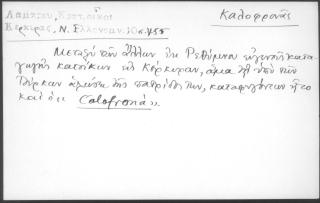 Λαμπτου, Κρητ. οἶκοι
Κερκύρας, Ν. Ἑλληνομν. 10 σ. 455
Καλοφρονᾶς
Μεταξὺ τῶν ἄλλων ἐκ Ρεθύμνου εὐγενῆ κατα
γωγὴν κατοίκων εἰς Κέρκυραν, ἅμα τῇ ὑπὸ τῶν
Τούρκων ἁλώσει τῆς πατρίδος των, καταφυγόντων ἦτο
καὶ ὁ « Calofronà »